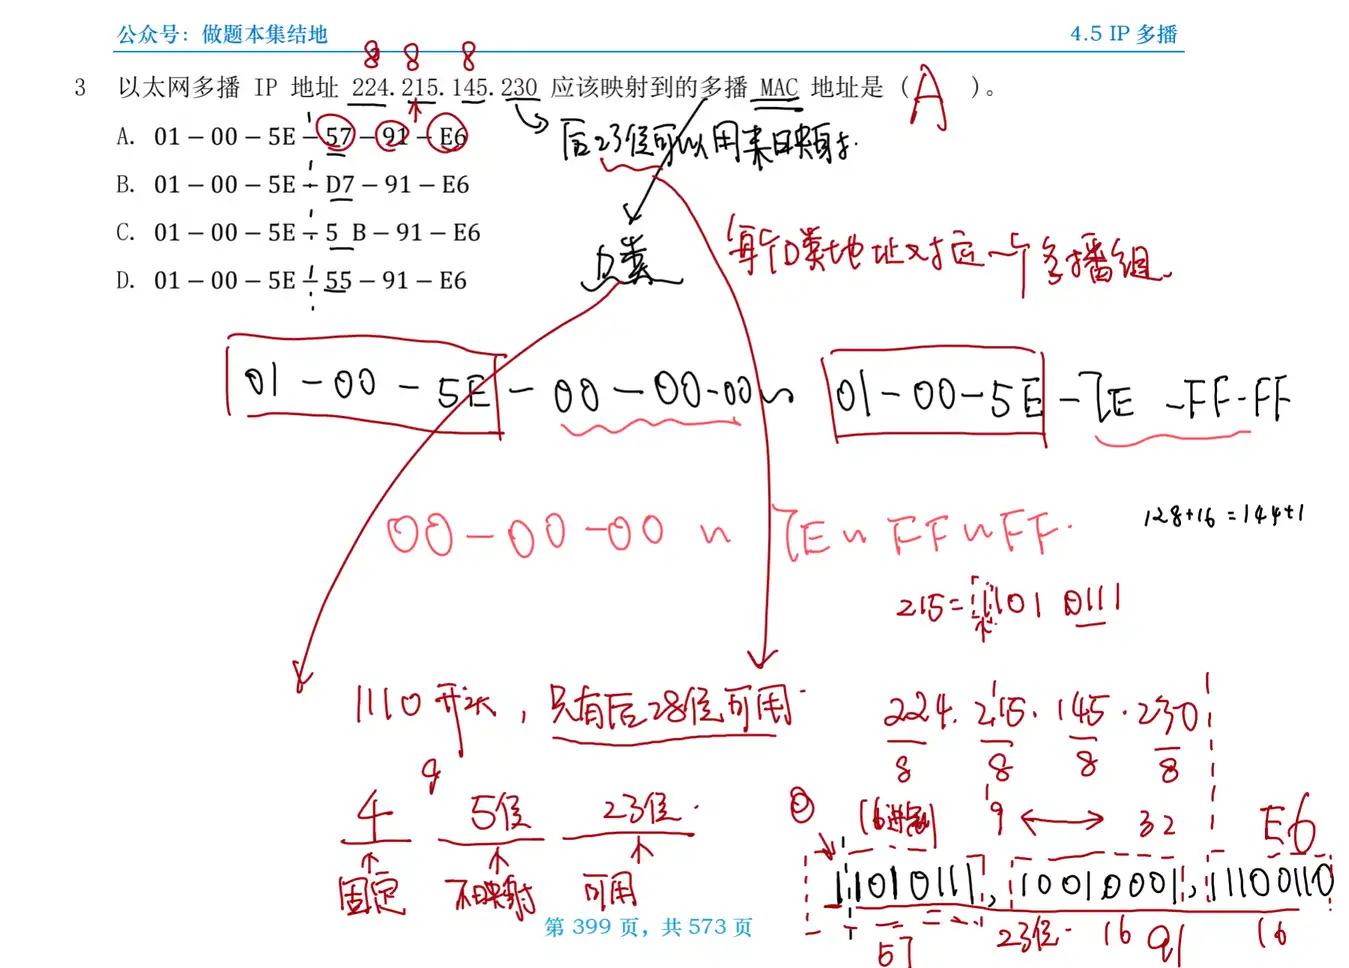 公众号：做题本集结地
4.5 IP 多播
8 8 8
3 以太网多播 IP 地址 224.215.145.230 应该映射到的多播 MAC 地址是（ A ）。
A. 01－00－5E－57－91－E6
后23位可以用来映射.
B. 01－00－5E－D7－91－E6
C. 01－00－5E－5 B－91－E6
D类
每个D类地址对应一个多播组.
D. 01－00－5E－55－91－E6
01-00-5E-00-00-00~ 01-00-5E-7E-FF-FF
00-00-00~7E~FF~FF.
128+16=144+1
215=1101 0111
1110开头，只有后28位可用.
224.215.145.230
8 8 8 8
9
4 5位 23位.
固定 不映射 可用
16进制 9 32 E6
11010111,10010001,11100110
57 23位. 16 91 16
第 399 页，共 573 页